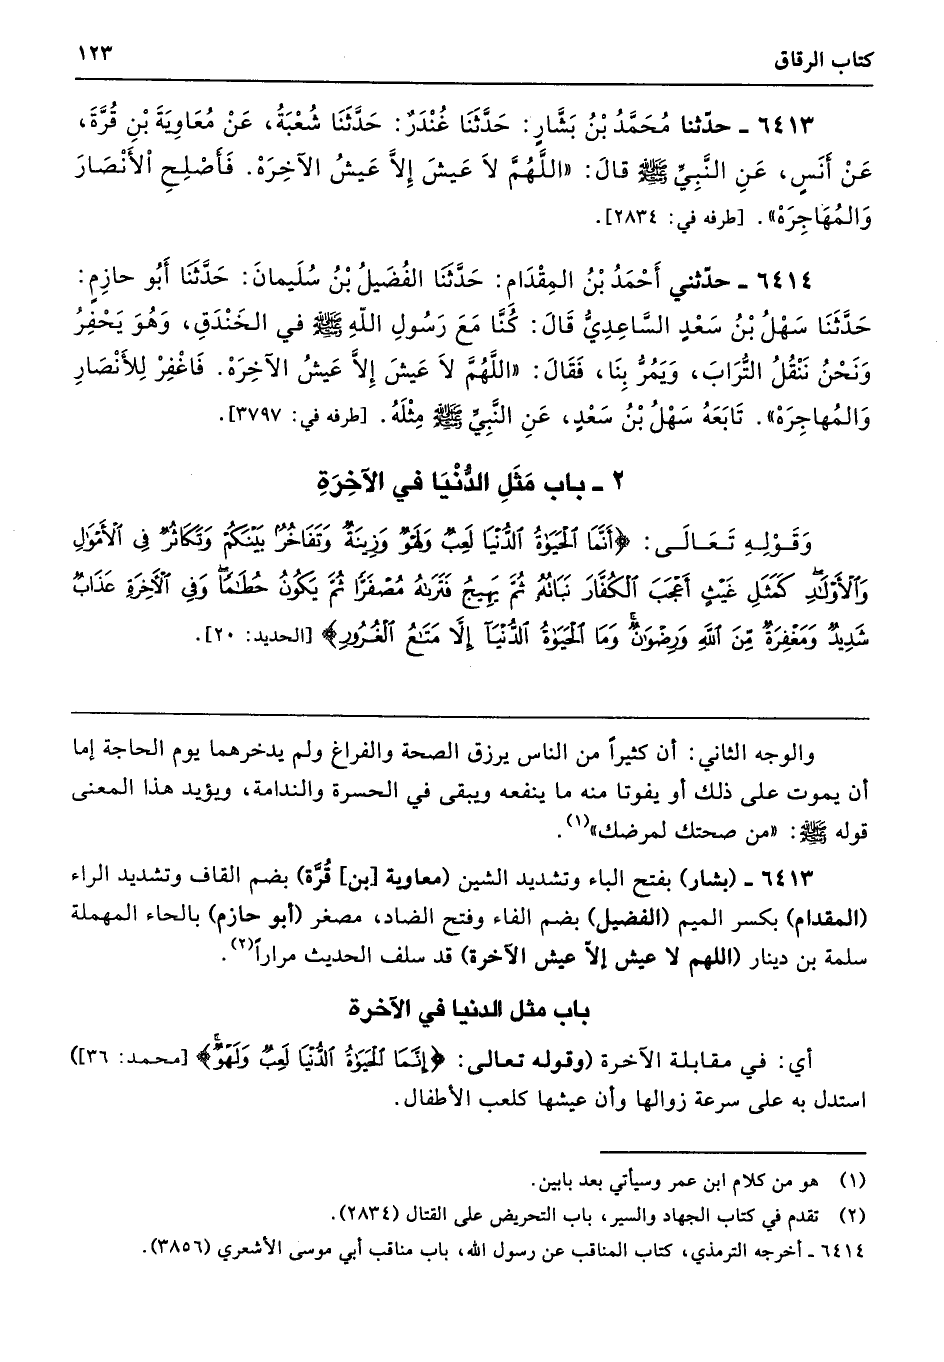 كتاب الرقاق ١٢٣
٦٤١٣ ـ حدّثنا مُحَمَّدُ بْنُ بَشَّارٍ: حَدَّثَنَا غُنْدَرٌ: حَدَّثَنَا شُعْبَةُ، عَنْ مُعَاوِيَةَ بْنِ قُرَّةَ،
عَنْ أَنَسٍ، عَنِ النَّبِيِّ ﷺ قالَ: «اللَّهُمَّ لاَ عَيشَ إِلاَّ عَيشُ الآخِرَهْ. فَأَصْلِحِ الْأَنْصَارَ
وَالمُهَاجِرَهْ». [طرفه في: ٢٨٣٤].
٦٤١٤ ـ حدّثني أَحْمَدُ بْنُ المِقْدَامِ: حَدَّثَنَا الفُضَيلُ بْنُ سُلَيمانَ: حَدَّثَنَا أَبُو حازِمٍ:
حَدَّثَنَا سَهْلُ بْنُ سَعْدٍ السَّاعِدِيُّ قَالَ: كُنَّا مَعَ رَسُولِ اللّهِ ﷺ في الخَنْدَقِ، وَهُوَ يَحْفِرُ
وَنَحْنُ نَنْقُلُ التُّرَابَ، وَيَمُرُّ بِنَا، فَقَالَ: «اللَّهُمَّ لاَ عَيشَ إِلاَّ عَيشُ الآخِرَهْ. فَاغْفِرْ لِلأَنْصَارِ
وَالمُهاجِرَهْ». تَابَعَهُ سَهْلُ بْنُ سَعْدٍ، عَنِ النَّبِيِّ ﷺ مِثْلَهُ. [طرفه في: ٣٧٩٧].
٢ ـ باب مَثَلِ الدُّنْيَا في الآخِرَةِ
وَقَوْلِهِ تَعَالَى: ﴿أَنَّمَا ٱلْحَيَوٰةُ ٱلدُّنْيَا لَعِبٌ وَلَهْوٌ وَزِينَةٌ وَتَفَاخُرٌۢ بَيْنَكُمْ وَتَكَاثُرٌ فِى ٱلْأَمْوَٰلِ
وَٱلْأَوْلَٰدِۖ كَمَثَلِ غَيْثٍ أَعْجَبَ ٱلْكُفَّارَ نَبَاتُهُۥ ثُمَّ يَهِيجُ فَتَرَىٰهُ مُصْفَرًّا ثُمَّ يَكُونُ حُطَٰمًاۖ وَفِى ٱلْأَخِرَةِ عَذَابٌ
شَدِيدٌ وَمَغْفِرَةٌ مِّنَ ٱللَّهِ وَرِضْوَٰنٌۚ وَمَا ٱلْحَيَوٰةُ ٱلدُّنْيَآ إِلَّا مَتَٰعُ ٱلْغُرُورِ﴾ [الحديد: ٢٠].
والوجه الثاني: أن كثيراً من الناس يرزق الصحة والفراغ ولم يدخرهما يوم الحاجة إما
أن يموت على ذلك أو يفوتا منه ما ينفعه ويبقى في الحسرة والندامة، ويؤيد هذا المعنى
قوله ﷺ: «من صحتك لمرضك»(١).
٦٤١٣ ـ (بشار) بفتح الباء وتشديد الشين (معاوية [بن] قُرَّة) بضم القاف وتشديد الراء
(المقدام) بكسر الميم (الفضيل) بضم الفاء وفتح الضاد، مصغر (أبو حازم) بالحاء المهملة
سلمة بن دينار (اللهم لا عيش إلاّ عيش الآخرة) قد سلف الحديث مراراً(٢).
باب مثل الدنيا في الآخرة
أي: في مقابلة الآخرة (وقوله تعالى: ﴿إِنَّمَا ٱلْحَيَوٰةُ ٱلدُّنْيَا لَعِبٌ وَلَهْوٌۚ﴾ [محمد: ٣٦])
استدل به على سرعة زوالها وأن عيشها كلعب الأطفال.
(١) هو من كلام ابن عمر وسيأتي بعد بابين.
(٢) تقدم في كتاب الجهاد والسير، باب التحريض على القتال (٢٨٣٤).
٦٤١٤ ـ أخرجه الترمذي، كتاب المناقب عن رسول الله، باب مناقب أبي موسى الأشعري (٣٨٥٦).